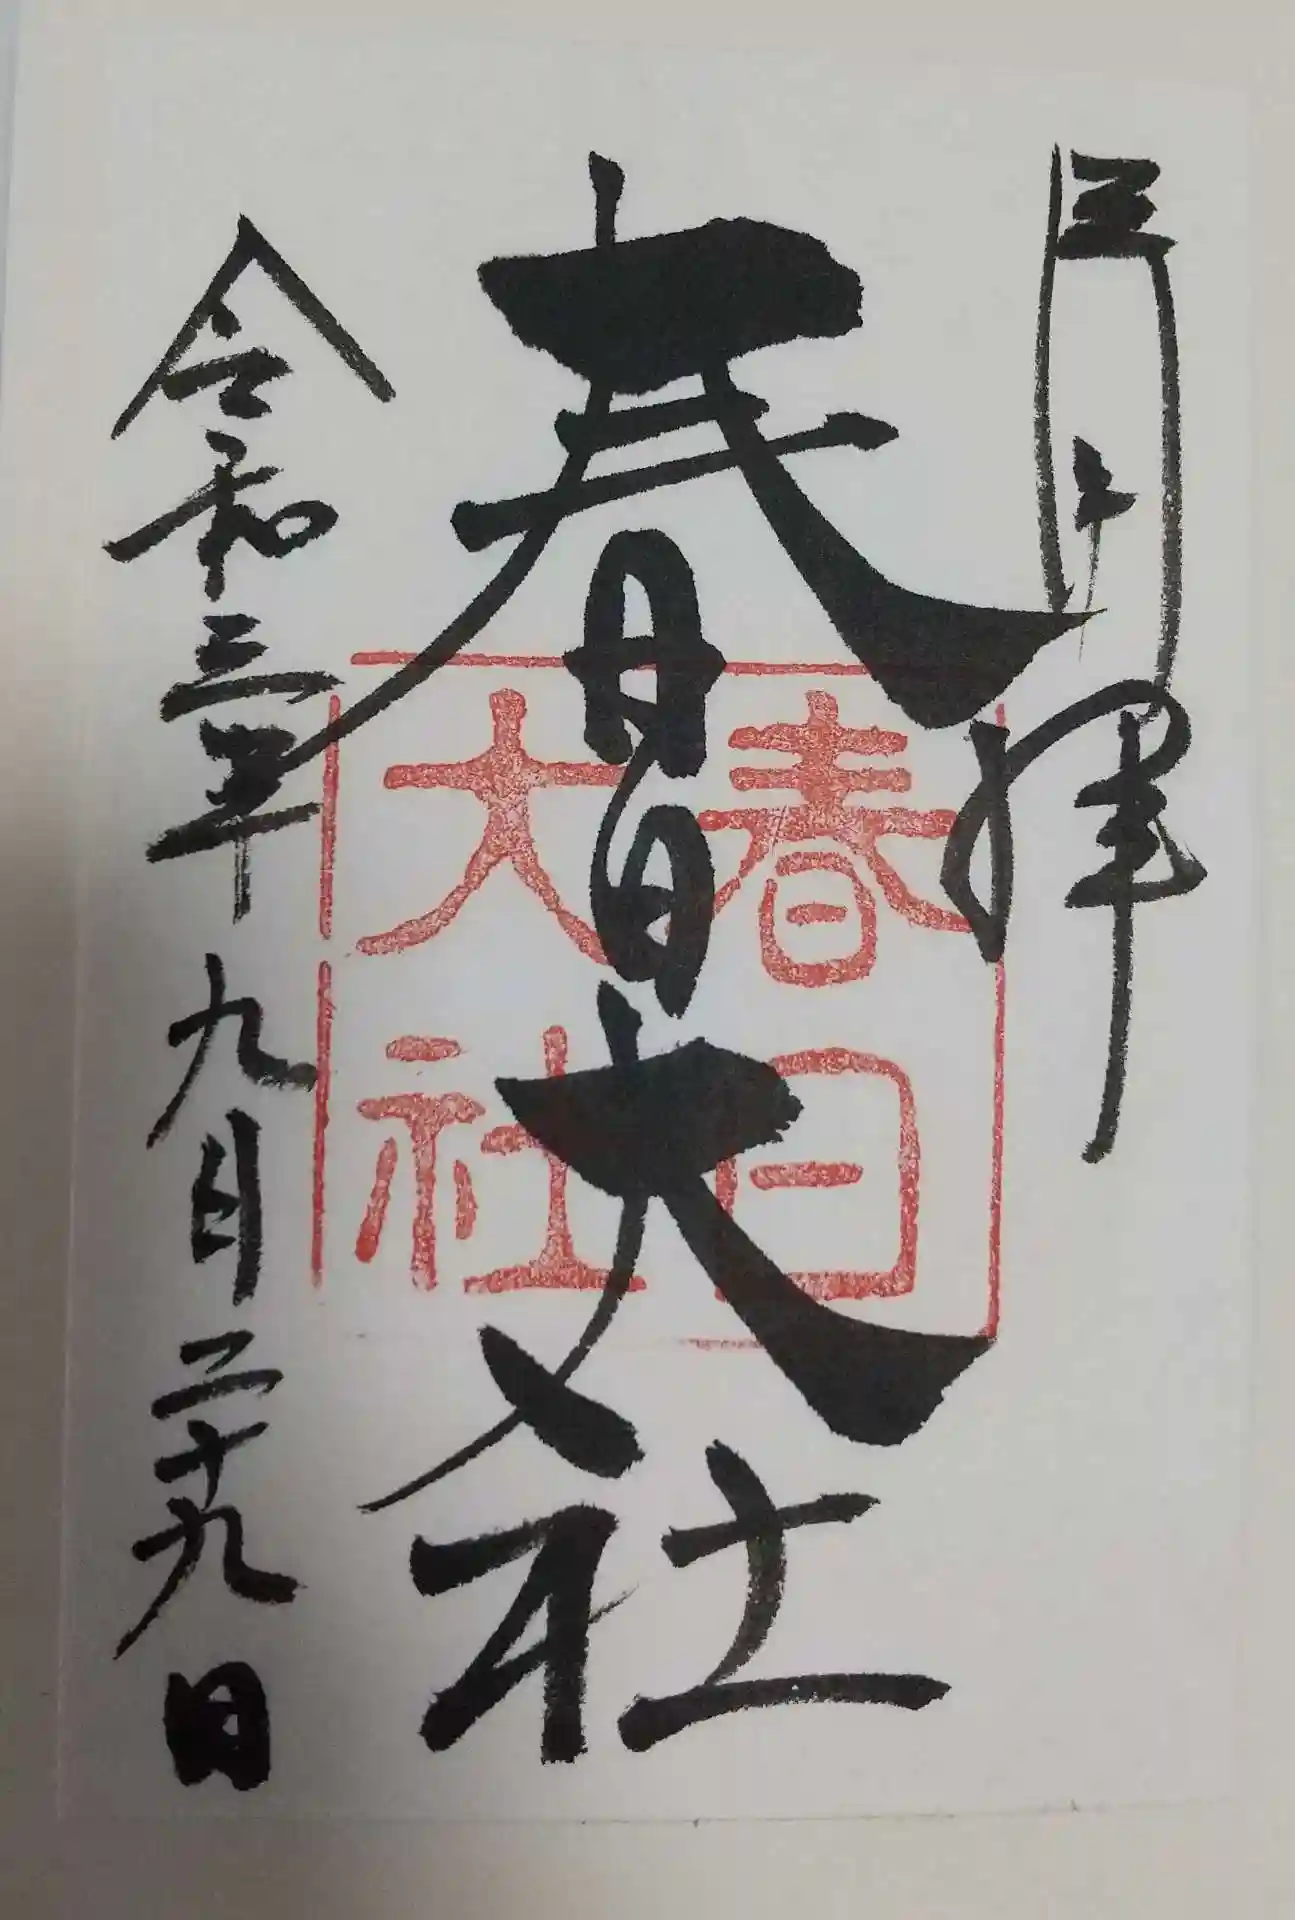 拝
春日大社
令和三年九月二十九日
春日
大社